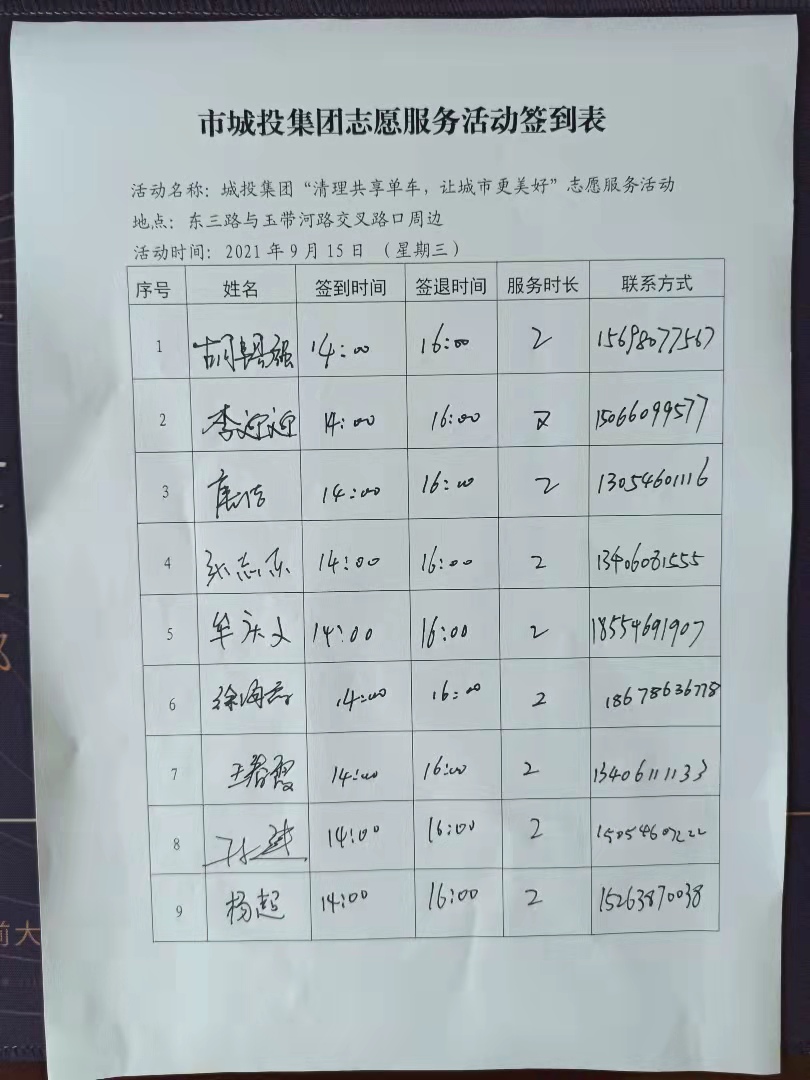 市城投集团志愿服务活动签到表
活动名称：城投集团“清理共享单车，让城市更美好”志愿服务活动
地点：东三路与玉带河路交叉路口周边
活动时间：2021年9月15日（星期三）
序号 姓名 签到时间 签退时间 服务时长 联系方式
1 14:00 16:00 2 15698077567
2 李迎迎 14:00 16:00 2 15066099577
3 14:00 16:00 2 13054601116
4 张志东 14:00 16:00 2 13406081555
5 牟庆文 14:00 16:00 2 18554691907
6 14:00 16:00 2 18678636778
7 王春霞 14:00 16:00 2 13406111133
8 14:00 16:00 2
9 杨超 14:00 16:00 2 15263870038
前大